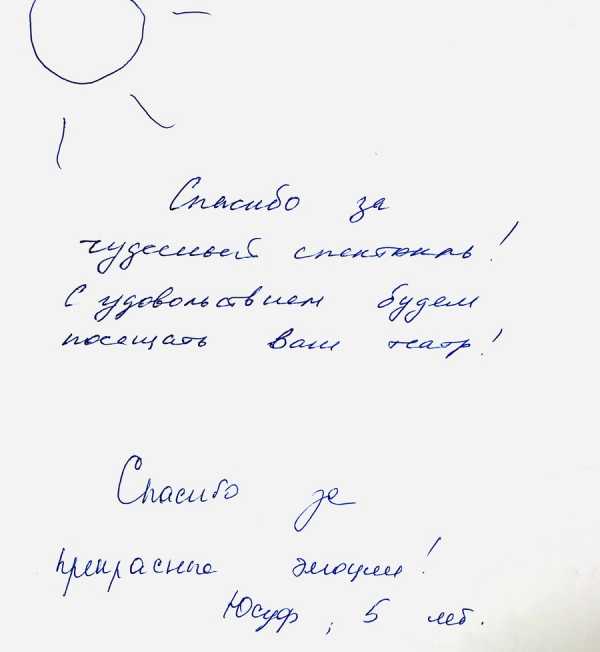 Спасибо за
чудесный спектакль!
С удовольствием будем
посещать Ваш театр!
Спасибо за
прекрасные эмоции!
Юсуф, 5 лет.